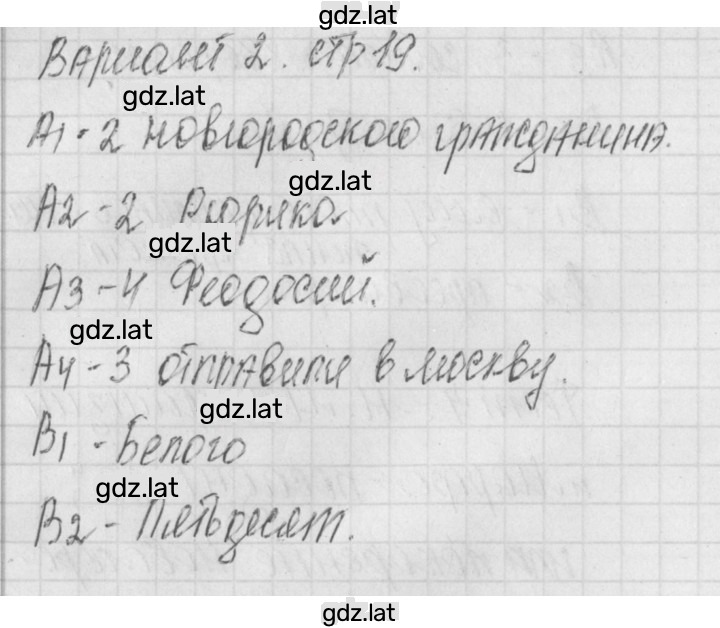 gdz.lat
Вариант 2. стр 19.
gdz.lat
А1 - 2 новгородского гражданина.
gdz.lat
А2 - 2 Рюрика
gdz.lat
А3 - 4 Феодосий.
gdz.lat
А4 - 3 отправили в москву.
gdz.lat
В1 - Белого
gdz.lat
В2 - Пятьдесят.
gdz.lat